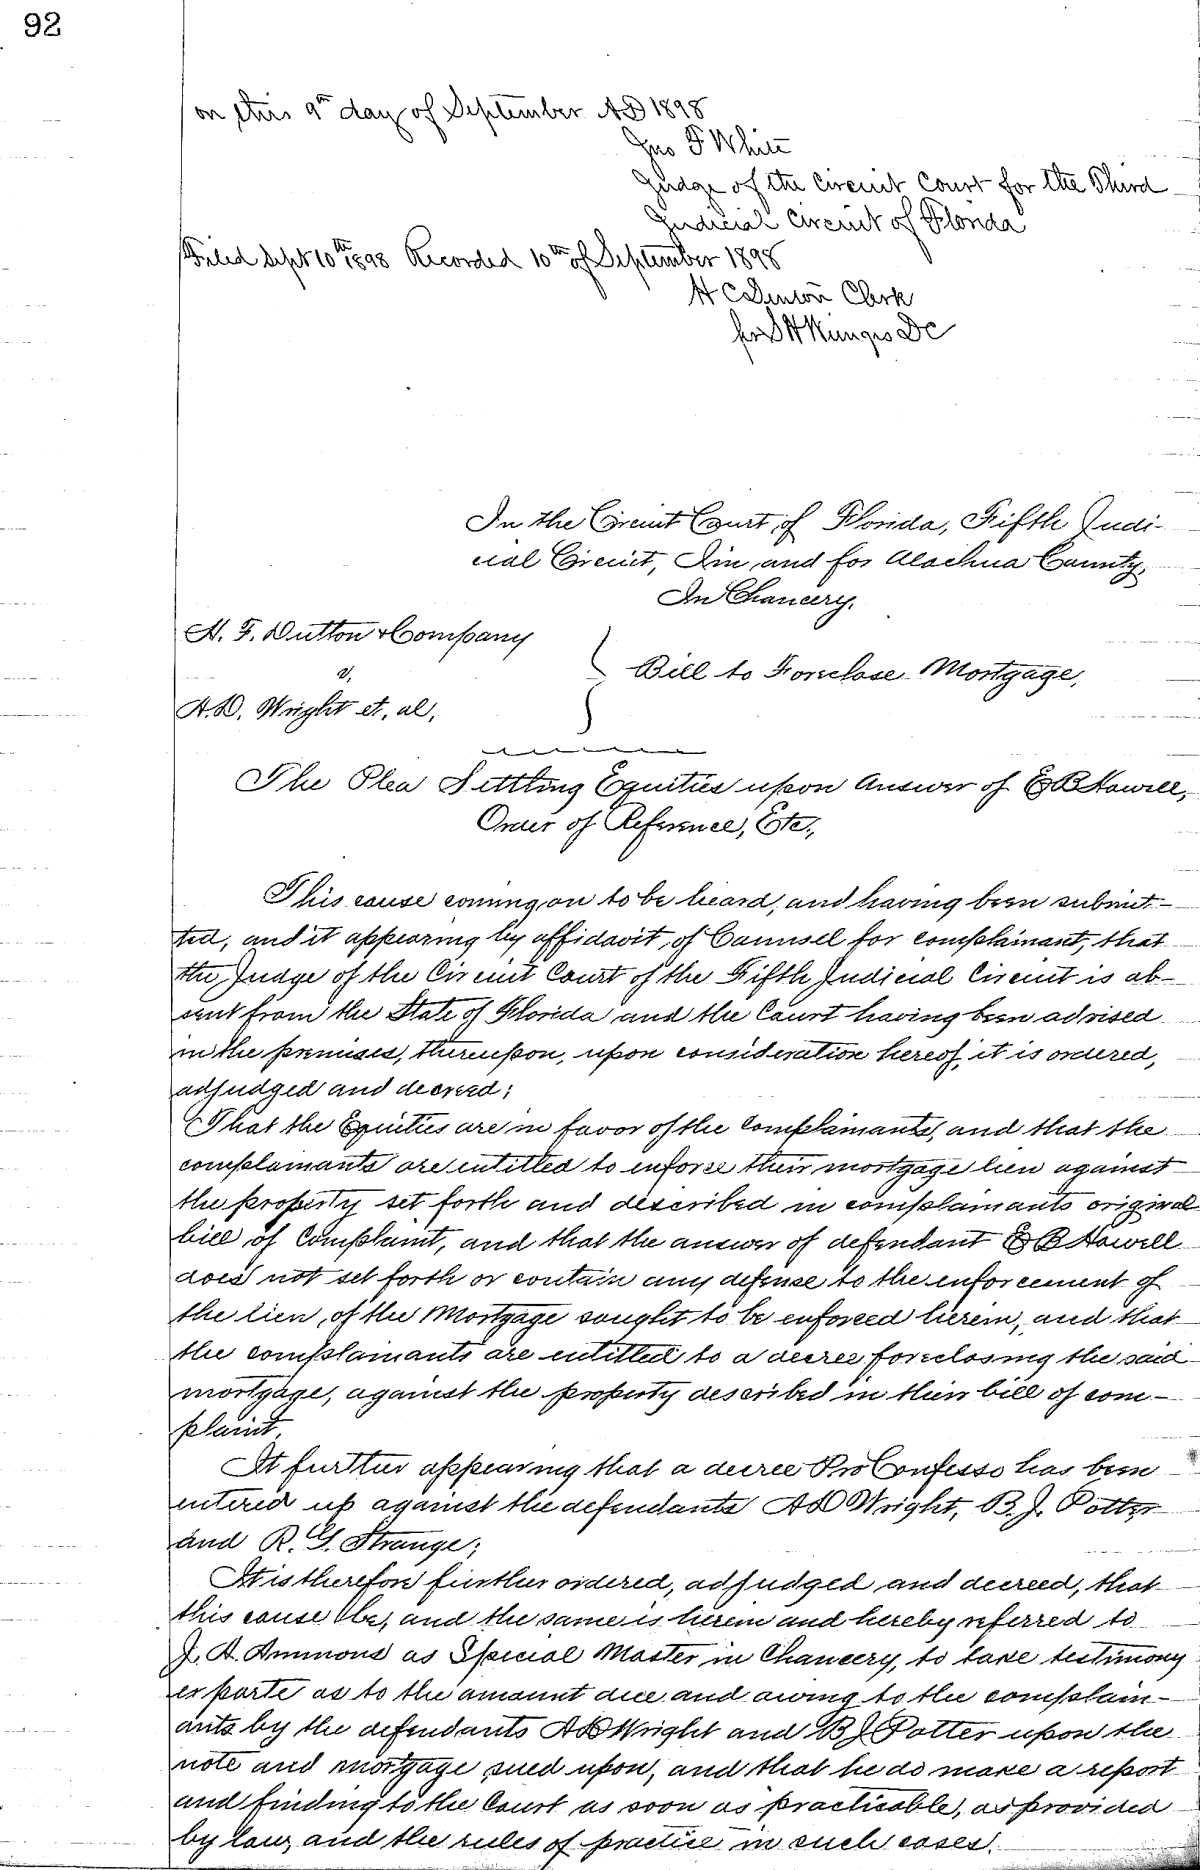 92
on this 9th day of September AD 1898
Jno F White
Judge of the Circuit Court for the Third
Judicial Circuit of Florida
Filed Sept 10th 1898 Recorded 10th of September 1898
H C Denton Clerk
per S H Wienges DC
In the Circuit Court of Florida, Fifth Judi-
cial Circuit, In and for Alachua County,
In Chancery.
H. F. Dutton & Company
v,
A. D. Wright et, al,
Bill to Foreclose Mortgage,
The Plea Settling Equities upon Answer of E B Howell,
Order of Reference, Etc.,
This cause coming on to be heard, and having been submit-
ted, and it appearing by affidavit, of Counsel for complainant, that
the Judge of the Circuit Court of the Fifth Judicial Circuit is ab-
sent from the State of Florida and the Court having been advised
in the premises, thereupon, upon consideration hereof, it is ordered,
adjudged and decreed;
That the Equities are in favor of the Complainants, and that the
complainants are entitled to enforce their mortgage lien against
the property set forth and described in complainants original
bill of Complaint, and that the answer of defendant E B Howell
does not set forth or contain any defense to the enforcement of
the lien, of the Mortgage sought to be enforced herein, and that
the complainants are entitled to a decree foreclosing the said
mortgage, against the property described in their bill of com-
plaint,
It further appearing that a decree Pro Confesso has been
entered up against the defendants A D Wright, B. J. Potter
and R. G. Strange;
It is therefore further ordered, adjudged and decreed, that
this cause be, and the same is herein and hereby referred to
J. A. Ammons as Special Master in Chancery, to take testimony
ex parte as to the amount due and owing to the complain-
ants by the defendants A D Wright and B J Potter upon the
note and mortgage sued upon, and that he do make a report
and finding to the Court as soon as practicable, as provided
by law, and the rules of practice in such cases.